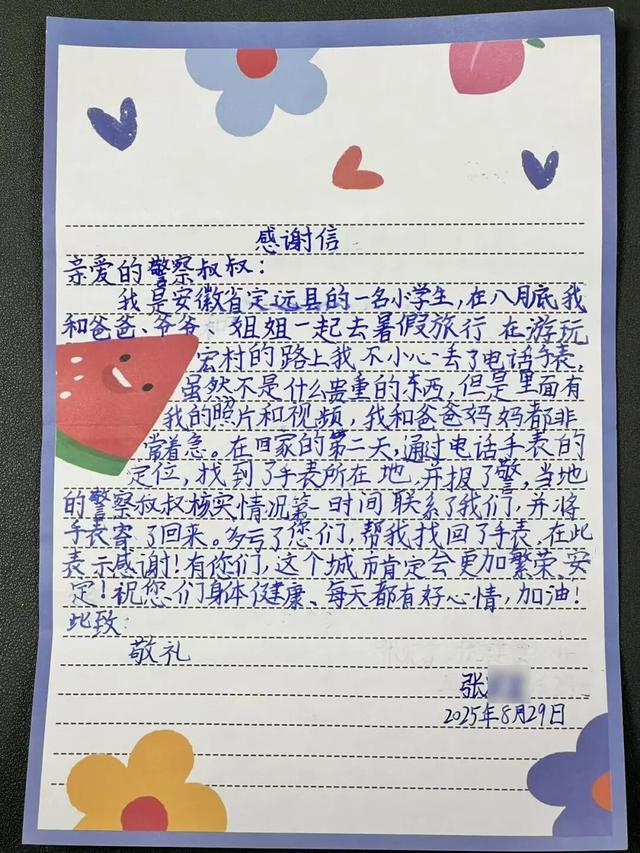 感谢信
亲爱的警察叔叔：
我是安徽省定远县的一名小学生，在八月底我
和爸爸、爷爷、姐姐一起去暑假旅行 在游玩
宏村的路上我，不小心丢了电话手表，
虽然不是什么贵重的东西，但是里面有
我的照片和视频，我和爸爸妈妈都非
常着急。在回家的第二天，通过电话手表的
定位，找到了手表所在地，并报了警，当地
的警察叔叔核实情况第一时间联系了我们，并将
手表寄了回来。多亏了您们，帮我找回了手表，在此
表示感谢！有您们，这个城市肯定会更加繁荣、安
定！祝您们身体健康、每天都有好心情，加油！
此致：
敬礼
张
2025年8月29日